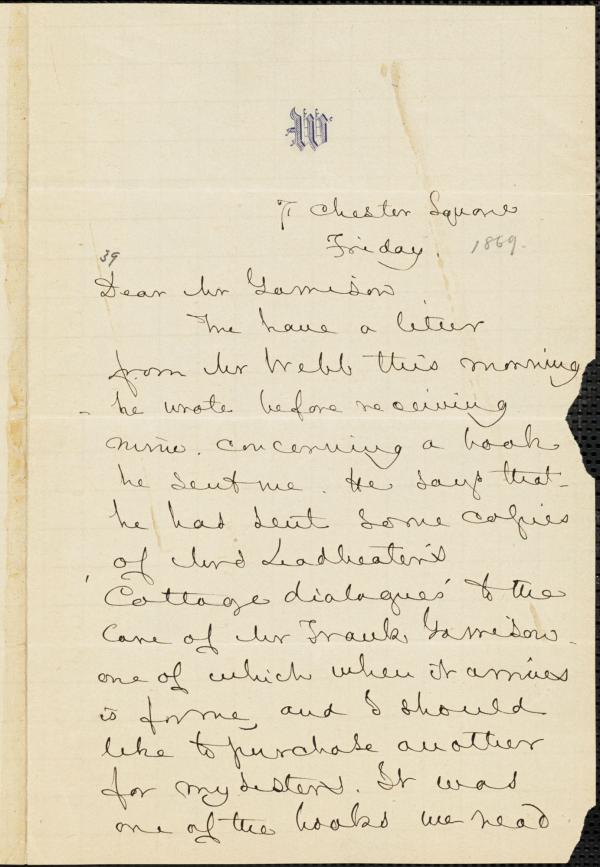 W
7 Chester Square
Friday. 1869.
39
Dear Mr Garrison
We have a letter
from Mr Webb this morning
- he wrote before receiving
mine. concerning a book
he sent me. He says that
he had sent some copies
of Mrs Leadbeater's
'Cottage dialogues' to the
care of Mr Frank Garrison.
one of which when it arrives
is for me, and I should
like to purchase another
for my sisters. It was
one of the books we read